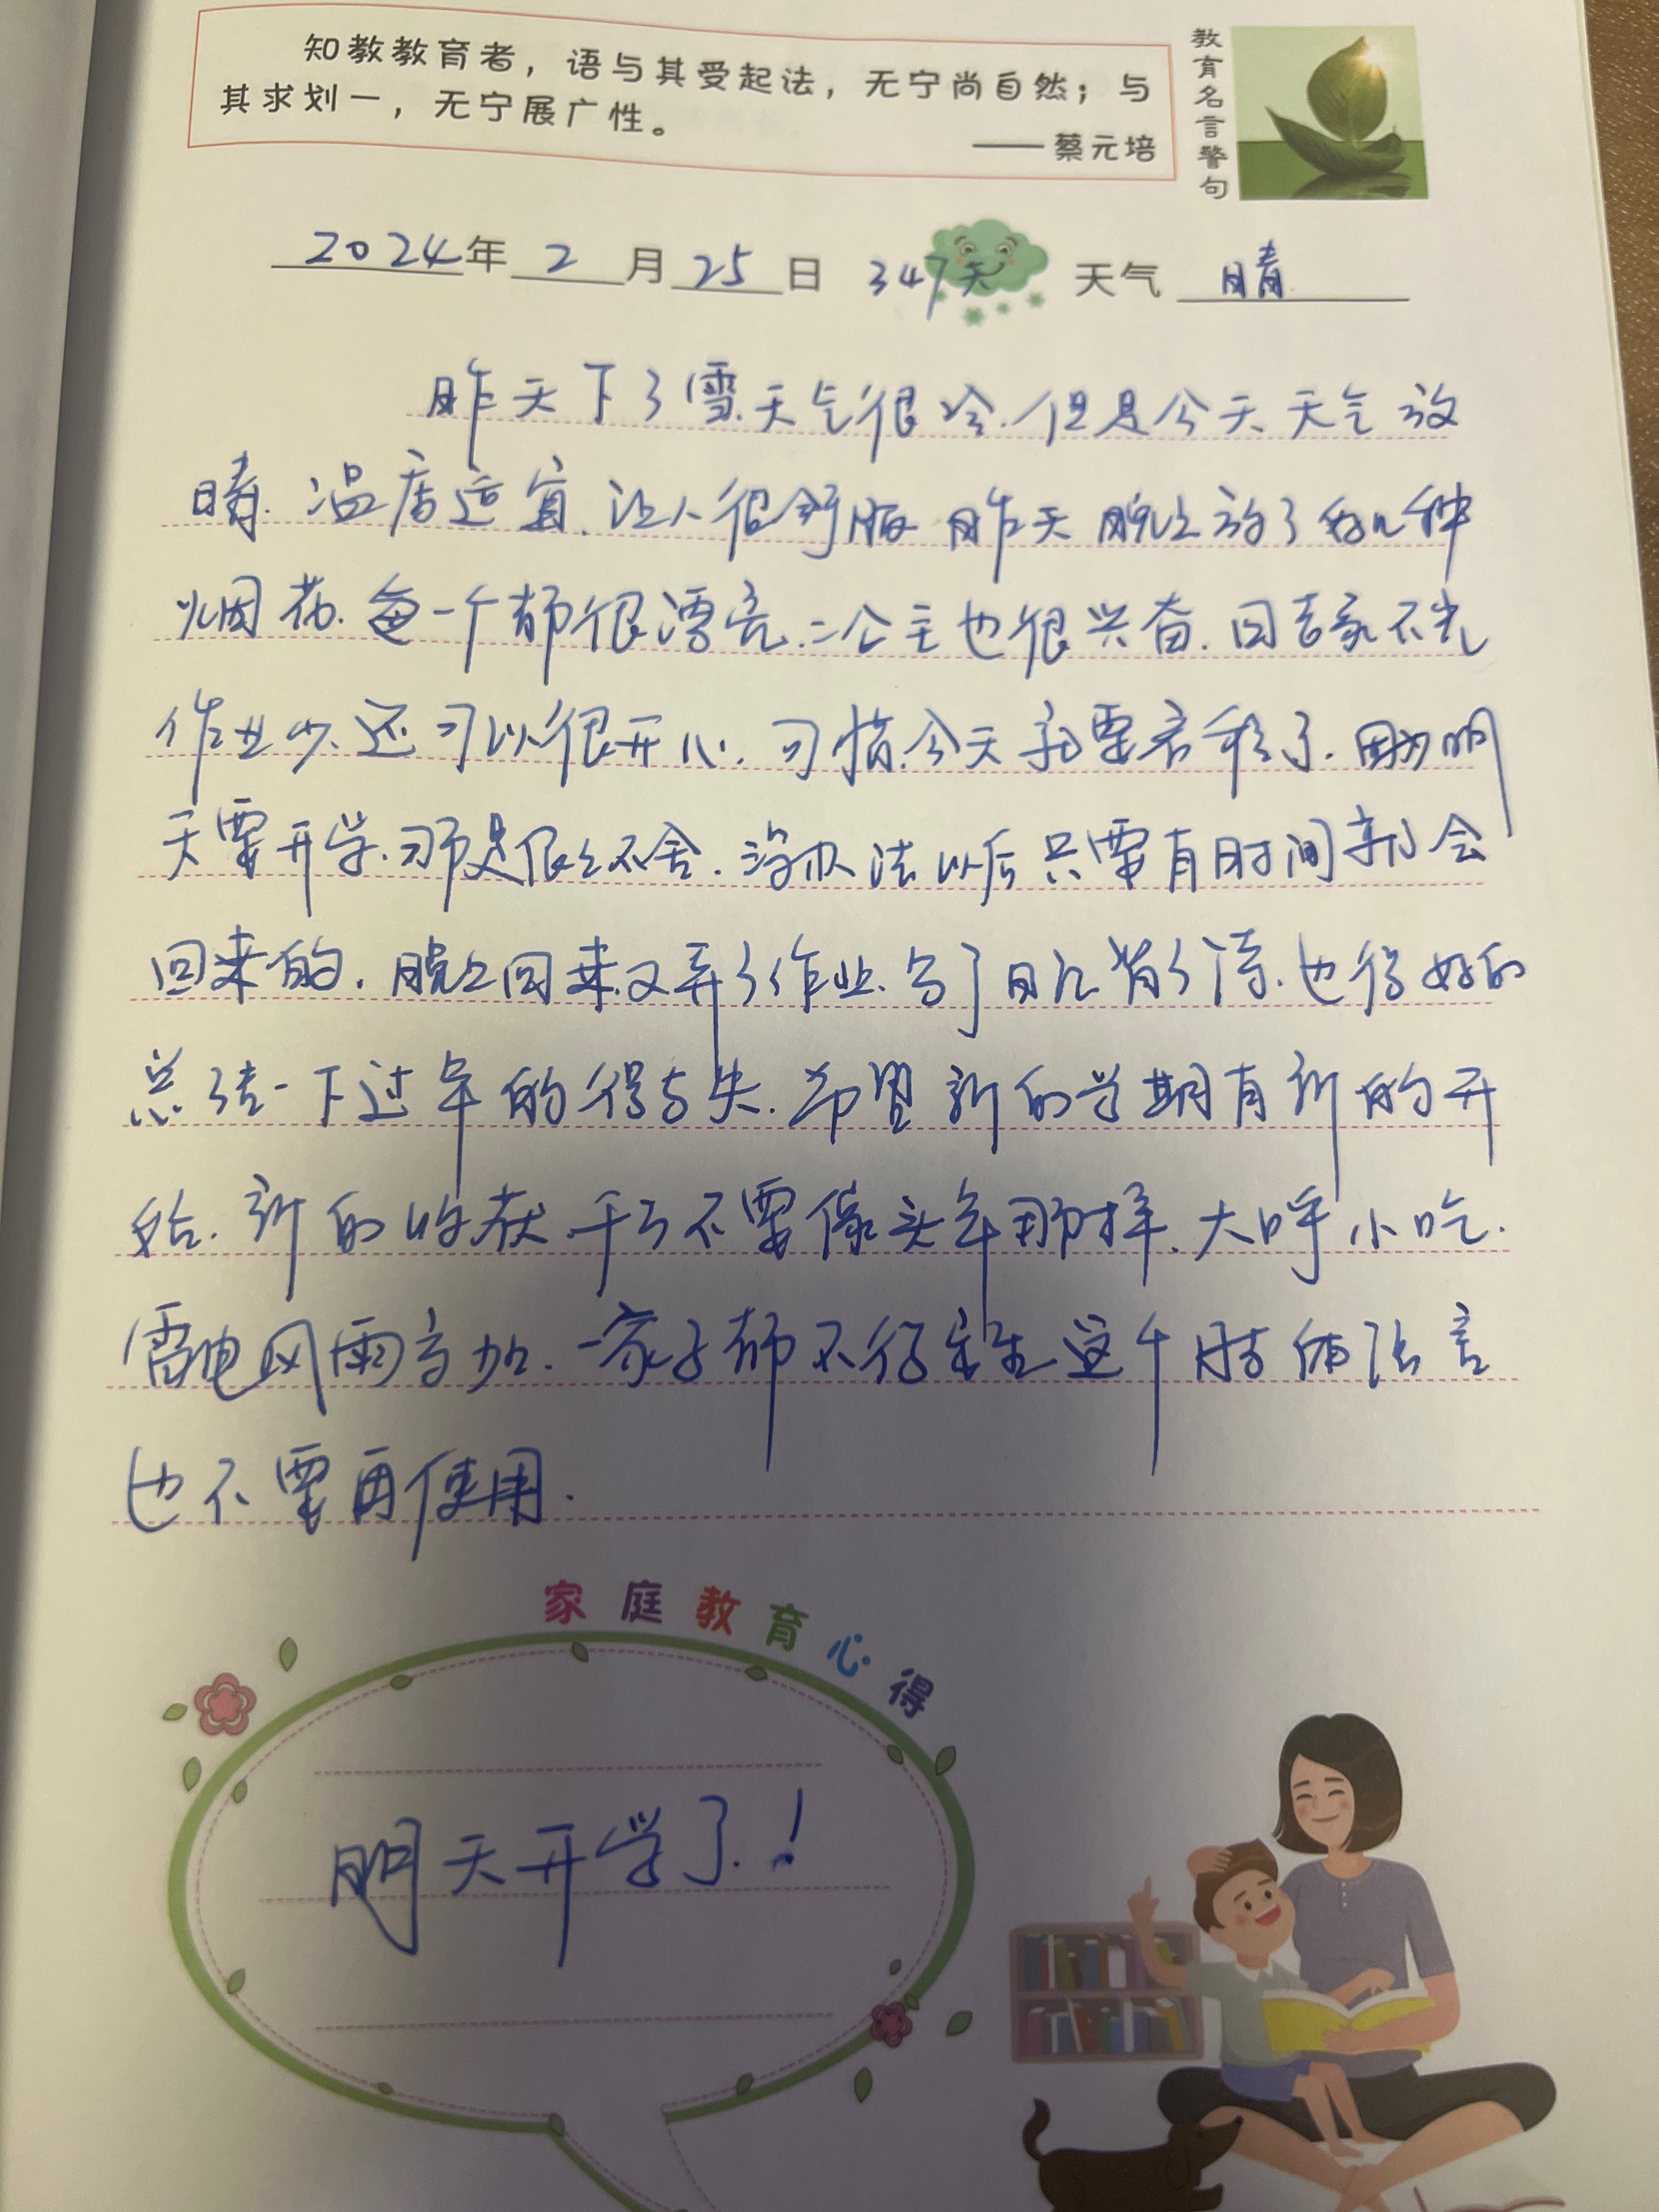 知教教育者，语与其受起法，无宁尚自然；与
其求划一，无宁展广性。
——蔡元培
教育名言警句
2024年2月25日 347天 天气 晴
昨天下了雪.天气很冷.但是今天天气放
晴.温度适宜.让人很舒服 昨天晚上放了好几种
烟花.每一个都很漂亮.二公主也很兴奋.回老家不光
作业少.还可以很开心.可惜.今天就要离移了.因为明
天要开学.可是依依不舍.没办法以后只要有时间就会
回来的.晚上回来又弄了作业.写了日记背了诗.也得好的
总结一下过年的得与失.希望新的学期有新的开
始.新的收获.千万不要像头年那样.大呼小吃.
雷电风雨交加.一家子都不得安生 这个肢体语言
也不要再使用.
家庭教育心得
明天开学了.！